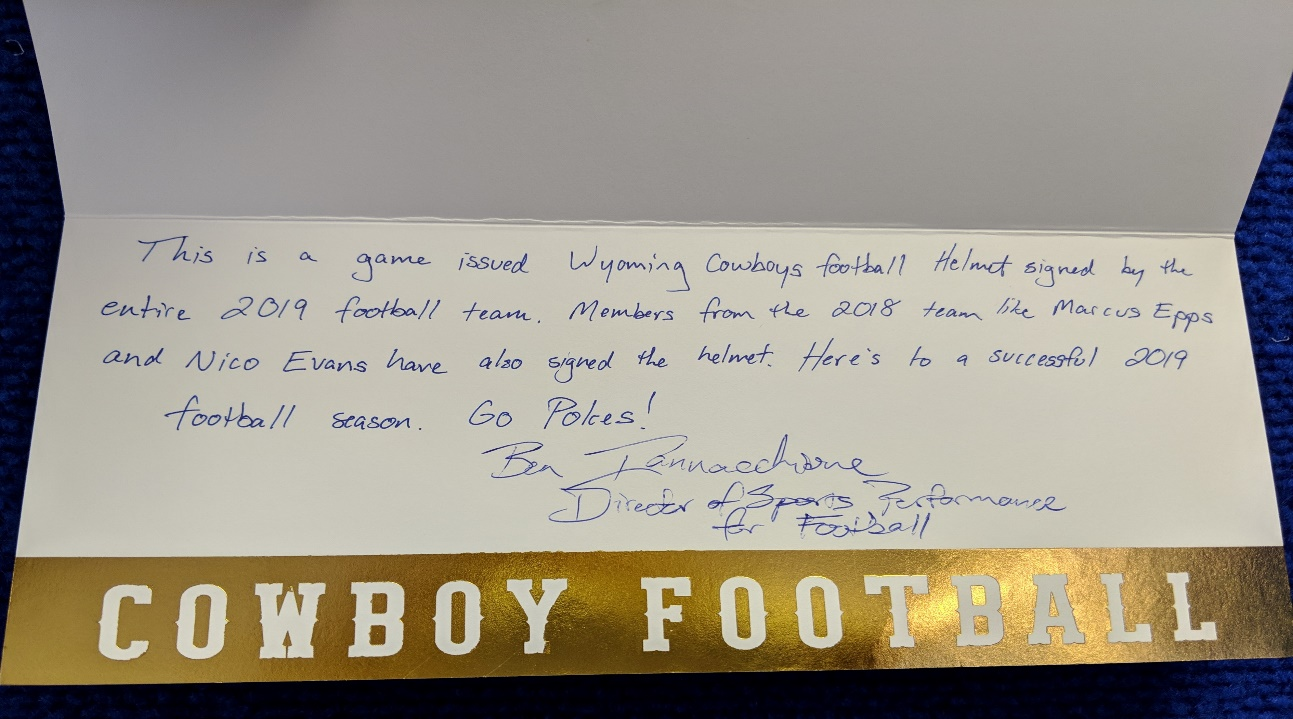 This is a game issued Wyoming Cowboys football Helmet signed by the
entire 2019 football team. Members from the 2018 team like Marcus Epps
and Nico Evans have also signed the helmet. Here's to a successful 2019
football season. Go Pokes!
Ben Iannacchione
Director of Sports Performance
for Football
COWBOY FOOTBALL